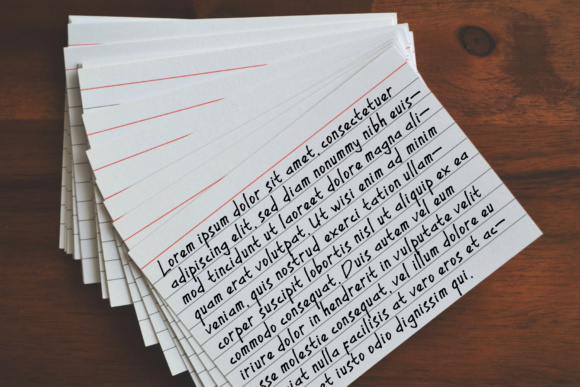 Lorem ipsum dolor sit amet, consectetuer
adipiscing elit, sed diam nonummy nibh euis—
mod tincidunt ut laoreet dolore magna ali—
quam erat volutpat. Ut wisi enim ad minim
veniam, quis nostrud exerci tation ullam—
corper suscipit lobortis nisl ut aliquip ex ea
commodo consequat. Duis autem vel eum
iriure dolor in hendrerit in vulputate velit
sse molestie consequat, vel illum dolore eu
iat nulla facilisis at vero eros et ac—
iusto odio dignissim qui.